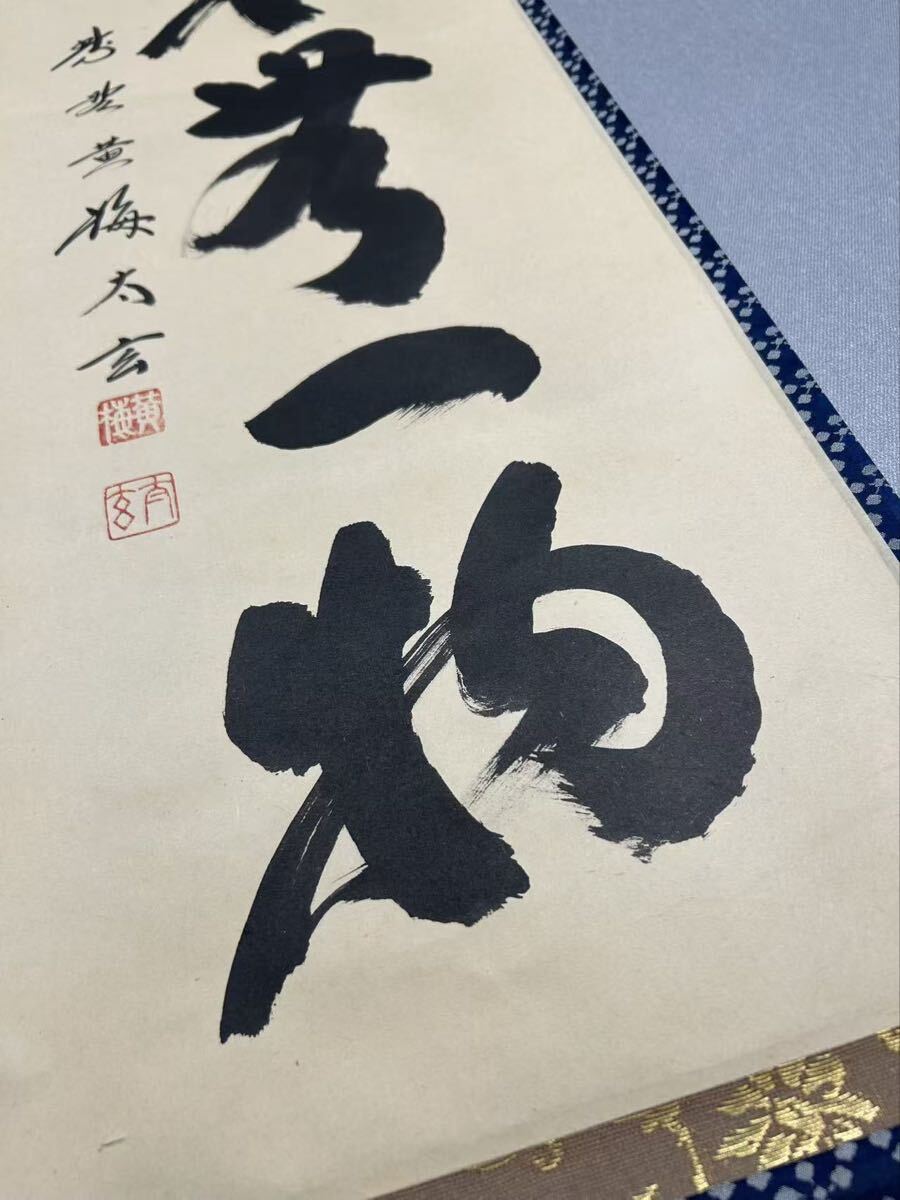 無一物
紫野黄梅太玄
黄梅